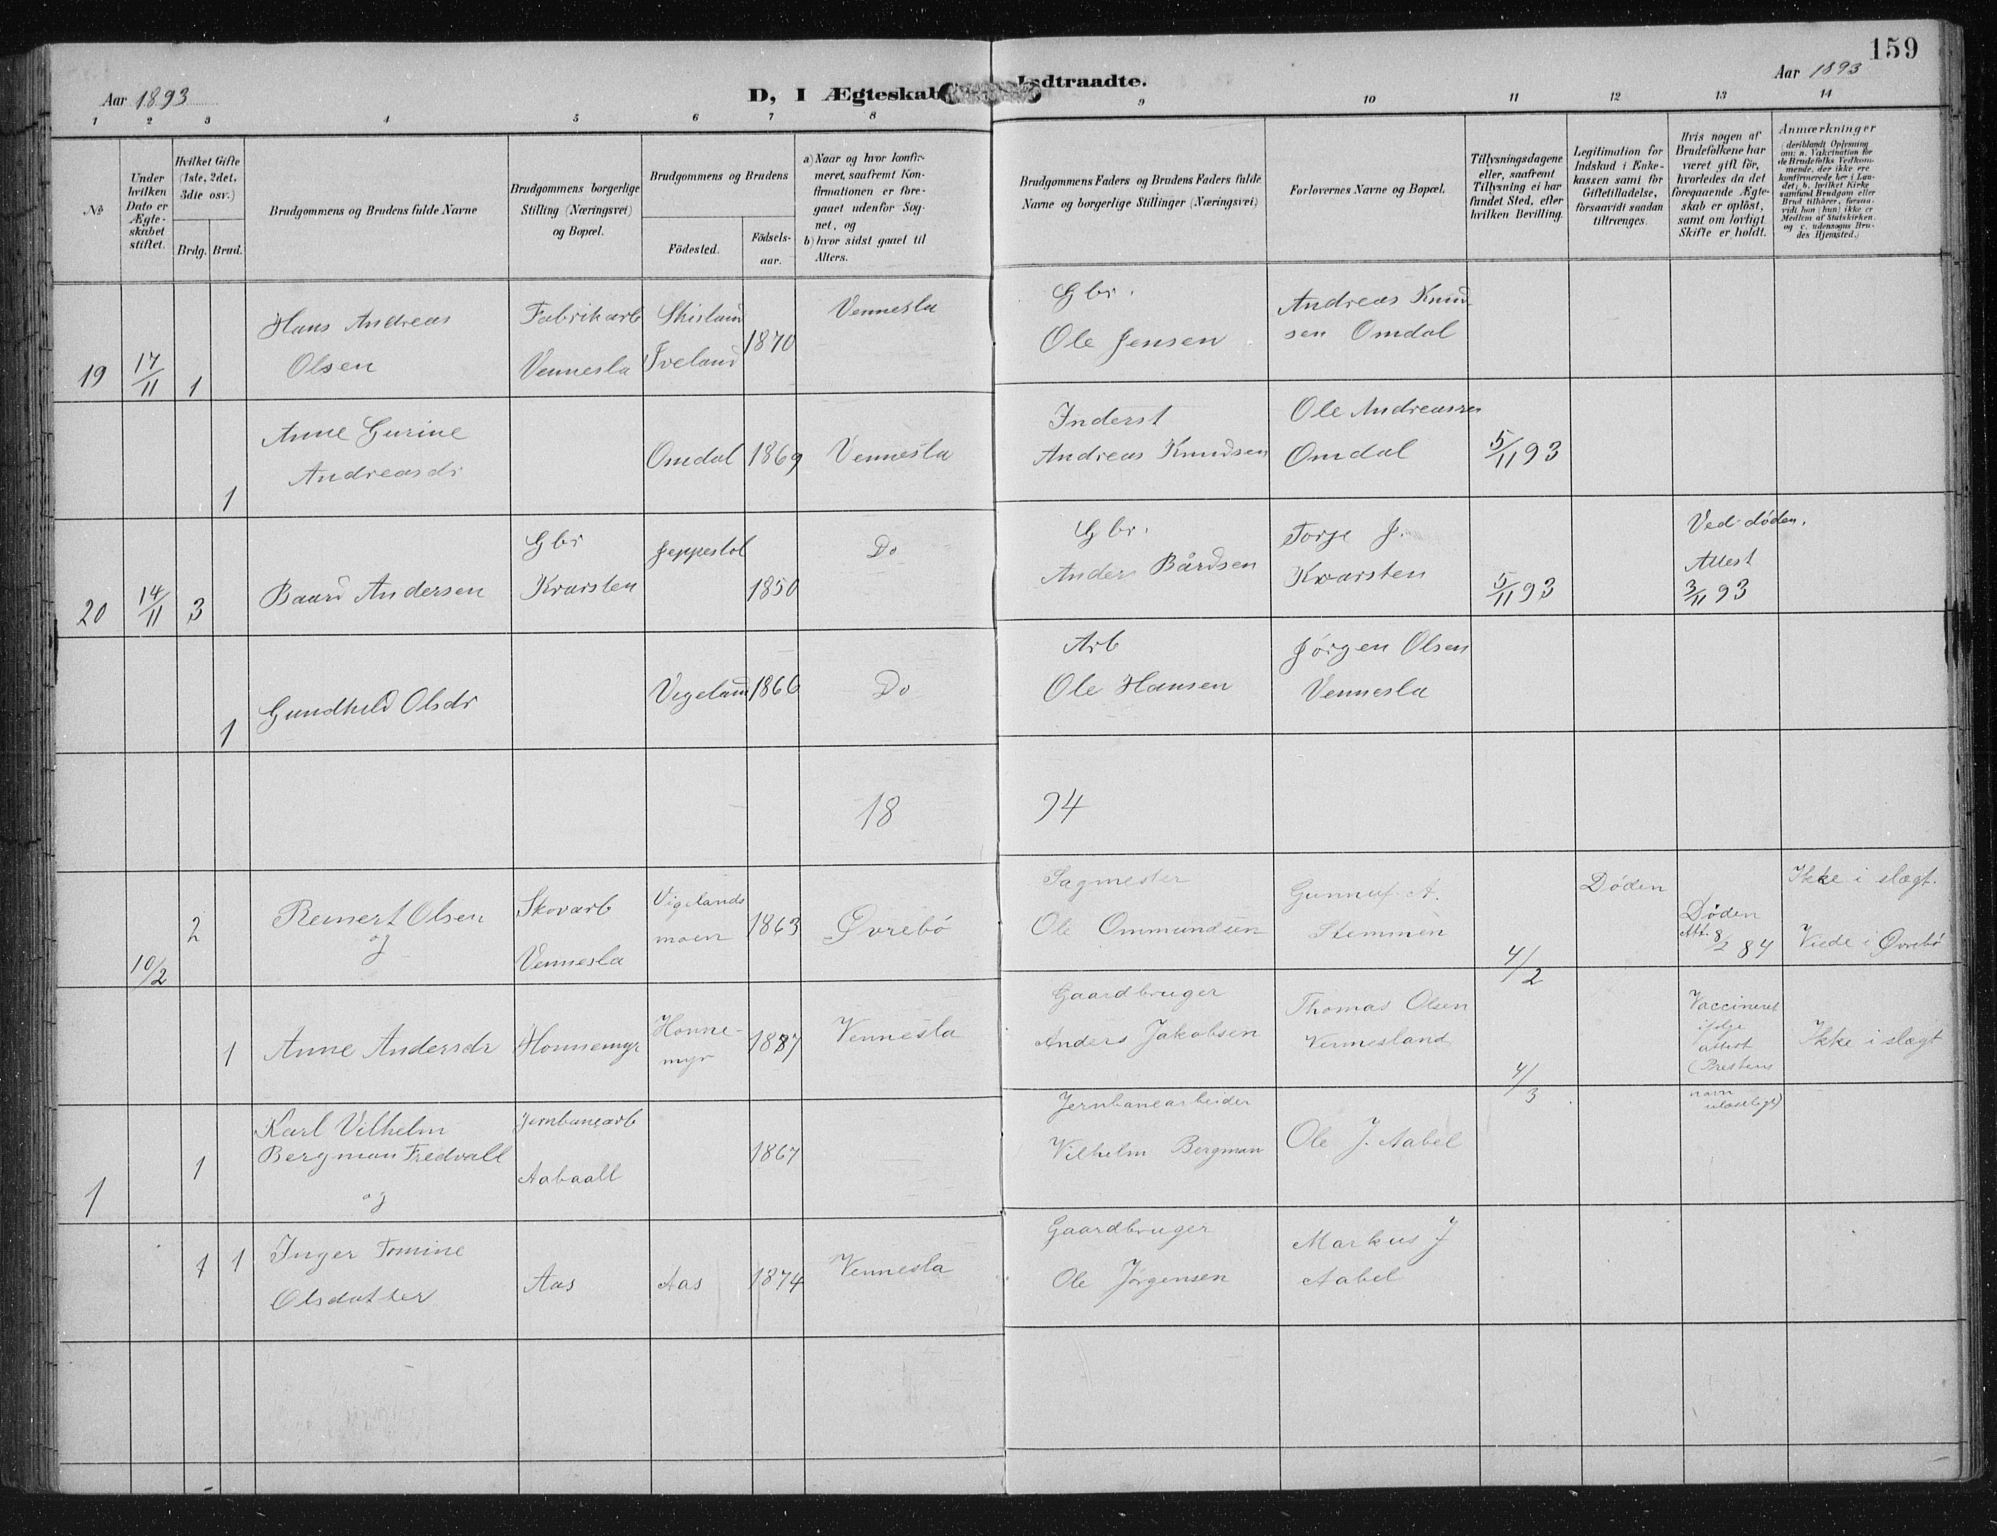 159
Aar 1893
D, I Ægteskab Indtraadte.
Aar 1893
1 2 3 4 5 6 7 8 9 10 11 12 13 14
No
Under hvilken Dato er Ægteskabet stiftet.
Hvilket Gifte (1ste, 2det, 3die osv.)
Brdg. Brud.
Brudgommens og Brudens fulde Navne
Brudgommens borgerlige Stilling (Næringsvei) og Bopæl.
Brudgommens og Brudens
Fødested.
Fødsels-aar.
a) Naar og hvor konfirmeret, saafremt Konfirmationen er foregaaet udenfor Sognet, og
b) hvor sidst gaaet til Alters.
Brudgommens Faders og Brudens Faders fulde Navne og borgerlige Stillinger (Næringsvei)
Forlovernes Navne og Bopæl.
Tillysningsdagene eller, saafremt Tillysning ei har fundet Sted, efter hvilken Bevilling.
Legitimation for Indskud i Enkekassen samt for Giftetilladelse, forsaavidt saadan tiltrænges.
Hvis nogen af Brudefolkene har været gift før, hvorledes da det foregaaende Ægteskab er opløst, samt om lovligt Skifte er holdt.
Anmærkninger
(deriblandt Oplysning om: a. Vakcination for de Brudefolks Vedkommende, der ikke ere konfirmerede her i Landet; b. hvilket Kirkesamfund Brudgom eller Brud tilhører, forsaavidt han (hun) ikke er Medlem af Statskirken, og c. udensogns Brudes Hjemsted.)
19 17/11 1 Hans Andreas Olsen
Fabrikarb Vennesla
Iveland
1870
Vennesla
Gbr. Ole Jensen
Andreas Knudsen Omdal
1 Anne Gurine Andreasdr
Omdal 1869 Vennesla
Inderst Andreas Knudsen
Ole Andreassen Omdal
5/11 93
20 14/11 3 Baard Andersen
Gbr Kvarsten
Jeppestøl
1850
Do
Gbr. Anders Bårdsen
Torje J. Kvarsten
5/11 93
Ved døden. Attest 3/11 93
1 Gundhild Olsdr
Vigeland 1866 Do
Arb Ole Hansen
Jørgen Olsen Vennesla
18 94
10/2 2 Reinert Olsen og
Skovarb Vennesla
Vigelands moen
1863 Øvrebø
Sagmester Ole Ommundsen
Gunnuf A. Stemmen
4/2
Døden
Døden Att. 8/2 84
Ikke i slægt. Viede i Øvrebø
1 Anne Andersdr Honnemyr
Honnemyr
Vennesla
Gaardbruger Anders Jakobsen
Thomas Olsen Vennesland
4/3
Vaccineret ifølge attest (Prestens navn ulæseligt)
Ikke i slægt
1 1 Karl Vilhelm Bergman Fredvall og
Jernbanearb
1867
Jernbanearbeider Vilhelm Bergman
Ole J. Aabel
1 1 Inger Tomine Olsdatter
Aas Aas 1874 Vennesla
Gaardbruger Ole Jørgensen
Markus J Aabel